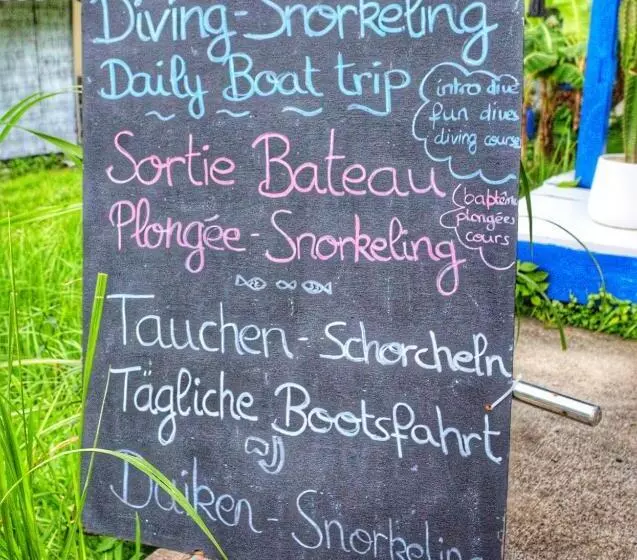 Diving-Snorkeling
Daily Boat trip
intro dive
fun dives
diving course
Sortie Bateau
Plongée-Snorkeling
baptême
plongées
cours
Tauchen-Schorcheln
Tägliche Bootsfahrt
Duiken-Snorkeling